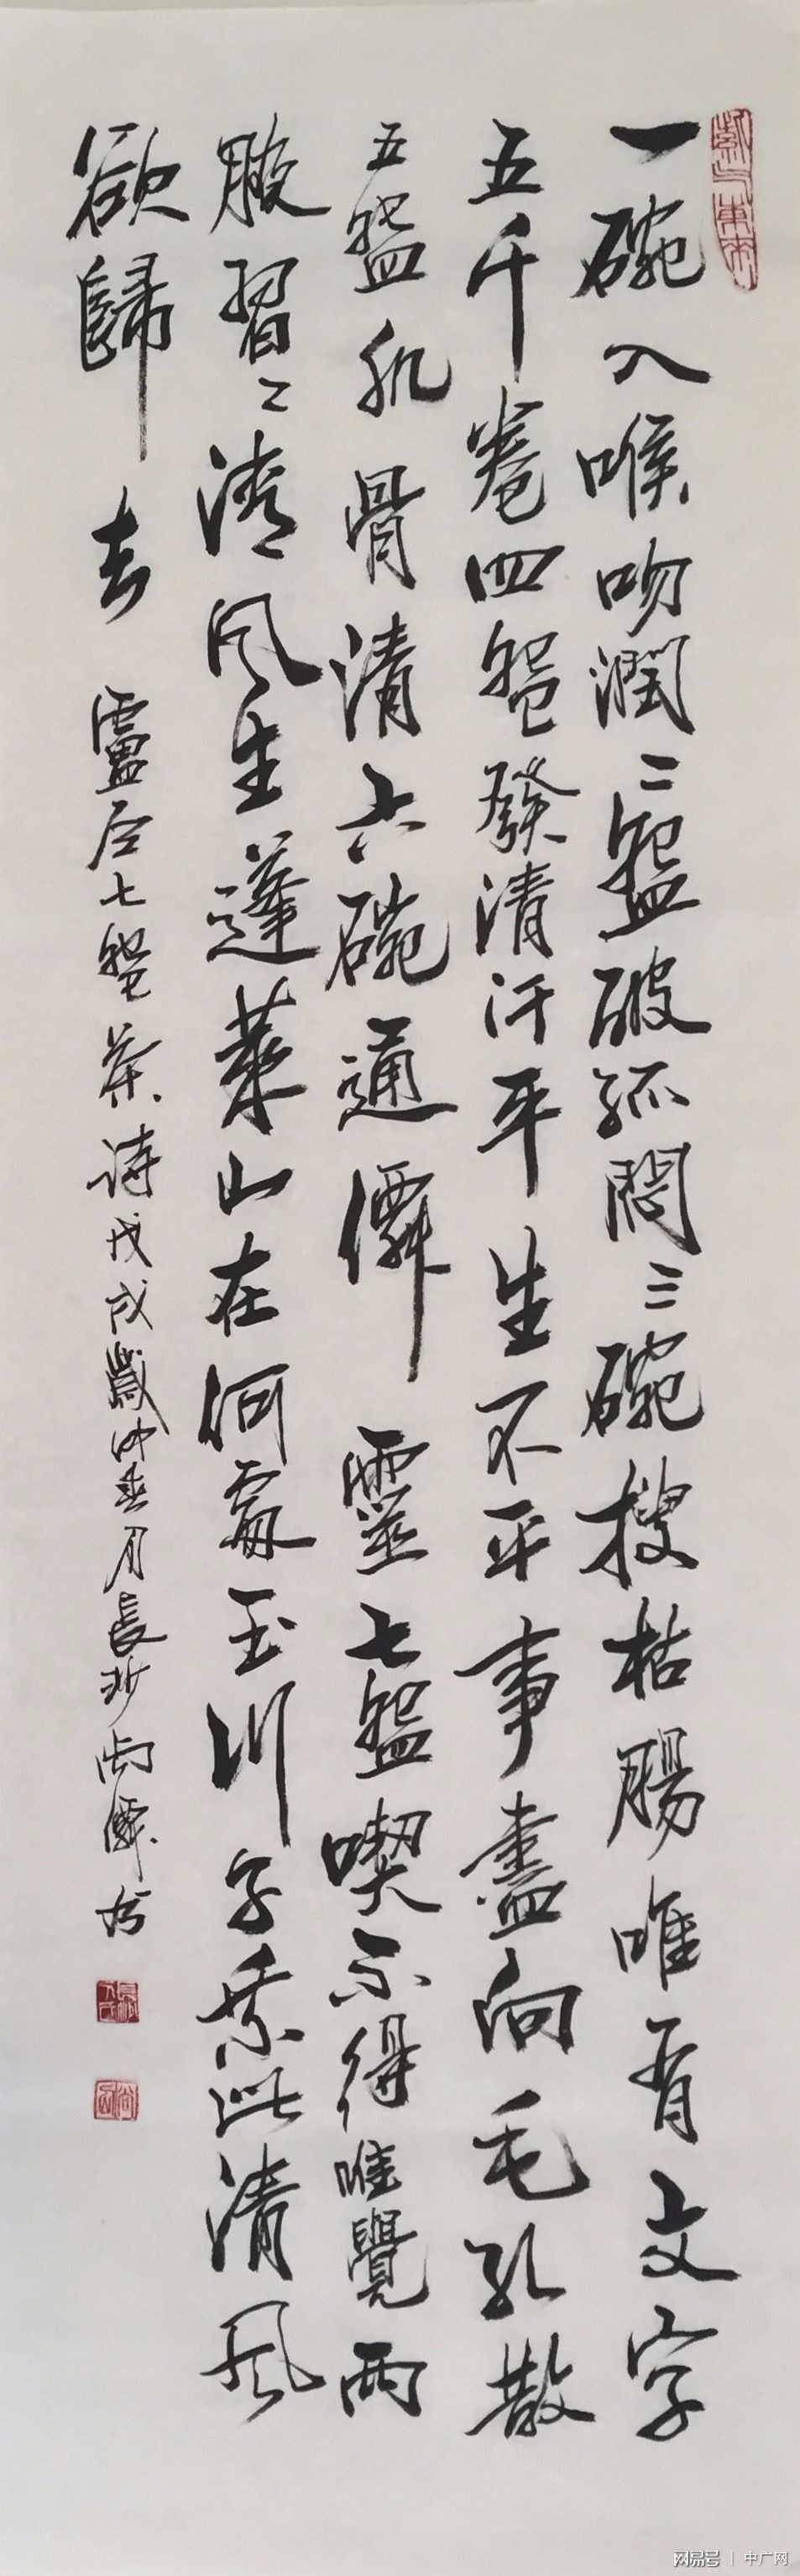 一碗入喉吻潤二盌破孤悶三碗搜枯腸唯有文字
五千卷四盌發清汗平生不平事盡向毛孔散
五盌肌骨清六碗通僊靈七盌喫不得唯覺兩
腋習〻清風生蓬萊山在何處玉川子乘此清風
欲歸去
盧仝七盌茶詩戊戌歲仲春月長沙尚僊書
紫气東來
網易号 | 中广网